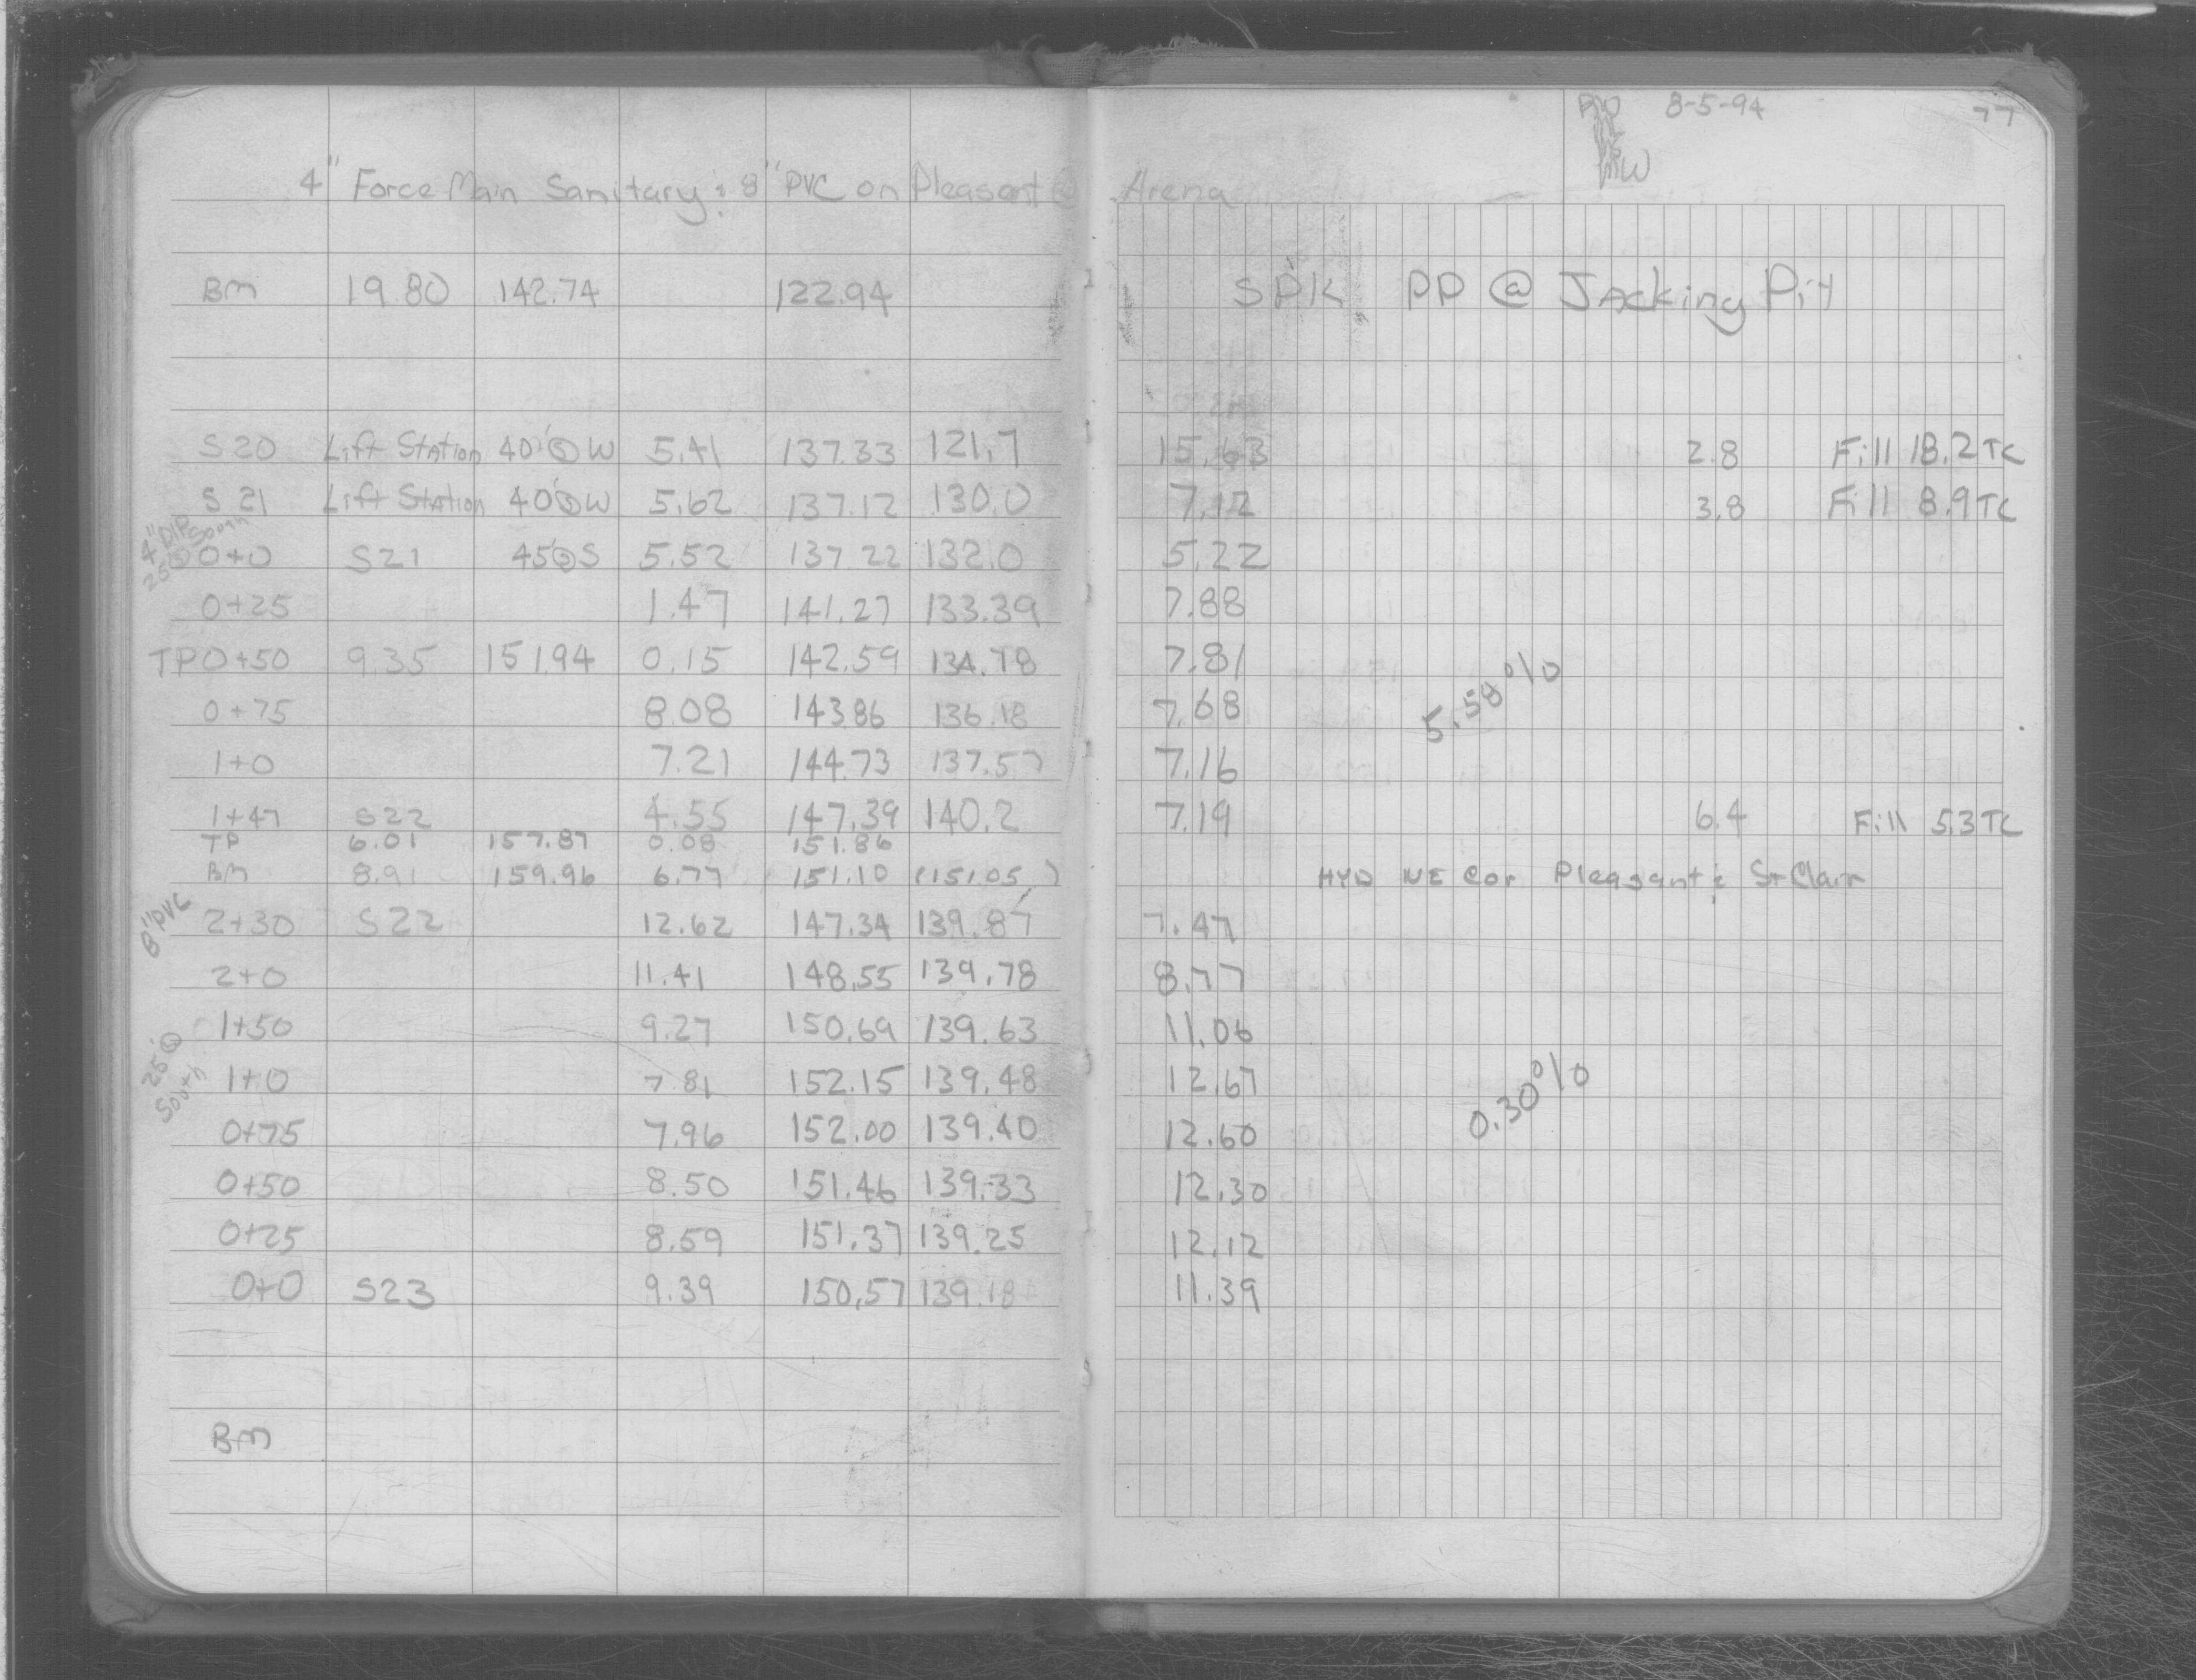 8-5-94 77
RW
4" Force Main Sanitary & 8" PVC on Pleasant @ Arena
BM 19.80 142.74 122.94 SPK PP @ Jacking Pit
S20 Lift Station 40' @ W 5.41 137.33 121.7 15.63 2.8 Fill 18.2 TC
S21 Lift Station 40' @ W 5.62 137.12 130.0 7.12 3.8 Fill 8.9 TC
4" DIP
25' @ South
0+0 S21 45' @ S 5.52 137.22 132.0 5.22
0+25 1.47 141.27 133.39 7.88
TP 0+50 9.35 151.94 0.15 142.59 134.78 7.81
0+75 8.08 143.86 136.18 7.68
5.58%
1+0 7.21 144.73 137.57 7.16
1+47 S22 4.55 147.39 140.2 7.19 6.4 Fill 5.3 TC
TP 6.01 157.87 0.08 151.86
BM 8.91 159.96 6.77 151.10 (151.05) HYD NE Cor Pleasant & St Clair
8" PVC
2+30 S22 12.62 147.34 139.87 7.47
2+0 11.41 148.55 139.78 8.77
1+50 9.27 150.69 139.63 11.06
25' @
South
1+0 7.81 152.15 139.48 12.67
0.30%
0+75 7.96 152.00 139.40 12.60
0+50 8.50 151.46 139.33 12.30
0+25 8.59 151.37 139.25 12.12
0+0 S23 9.39 150.57 139.18 11.39
BM